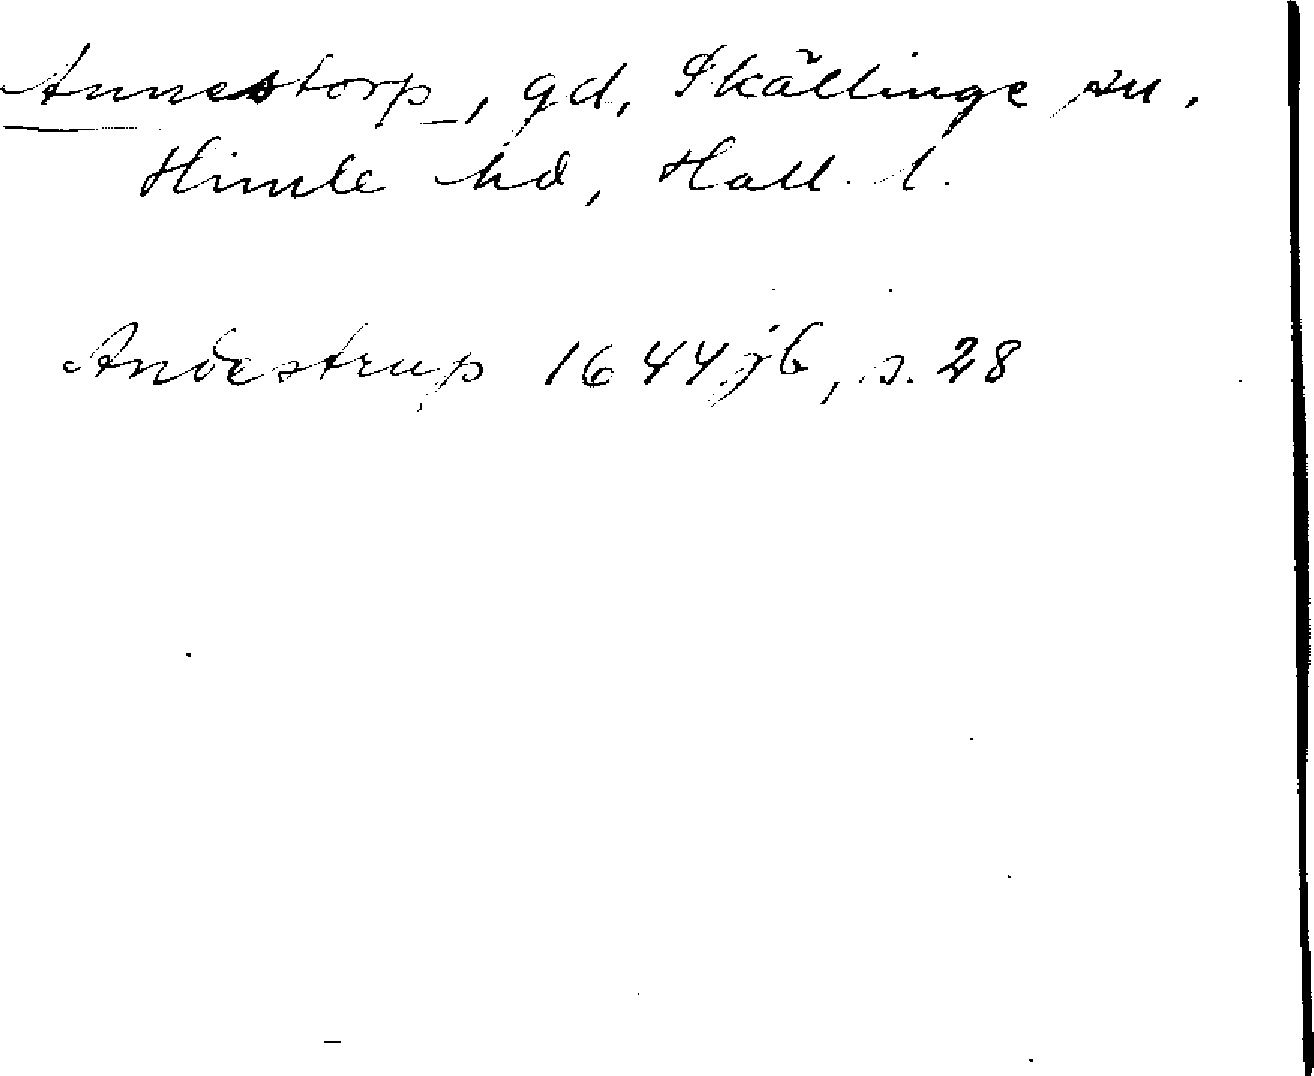 Annestorp, gd, Skällinge sn,
Himle hd, Hall. l.
Andestrup 1644 jb, s. 28